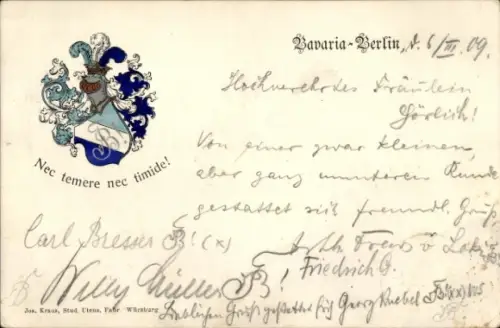 Bavaria-Berlin, d. 6/III 09.
Hochverehrtes Fräulein
Görlich!
Von einer zwar kleinen,
aber ganz munteren Runde
gestattet sich freundl. Gruß
Nec temere nec timide!
Carl Bresser B! (x)
Friedrich G.
Willy Müller B!
Gruß gestattet sich Georg
Jos. Kraus, Stud. Utens. Fabr. Würzburg